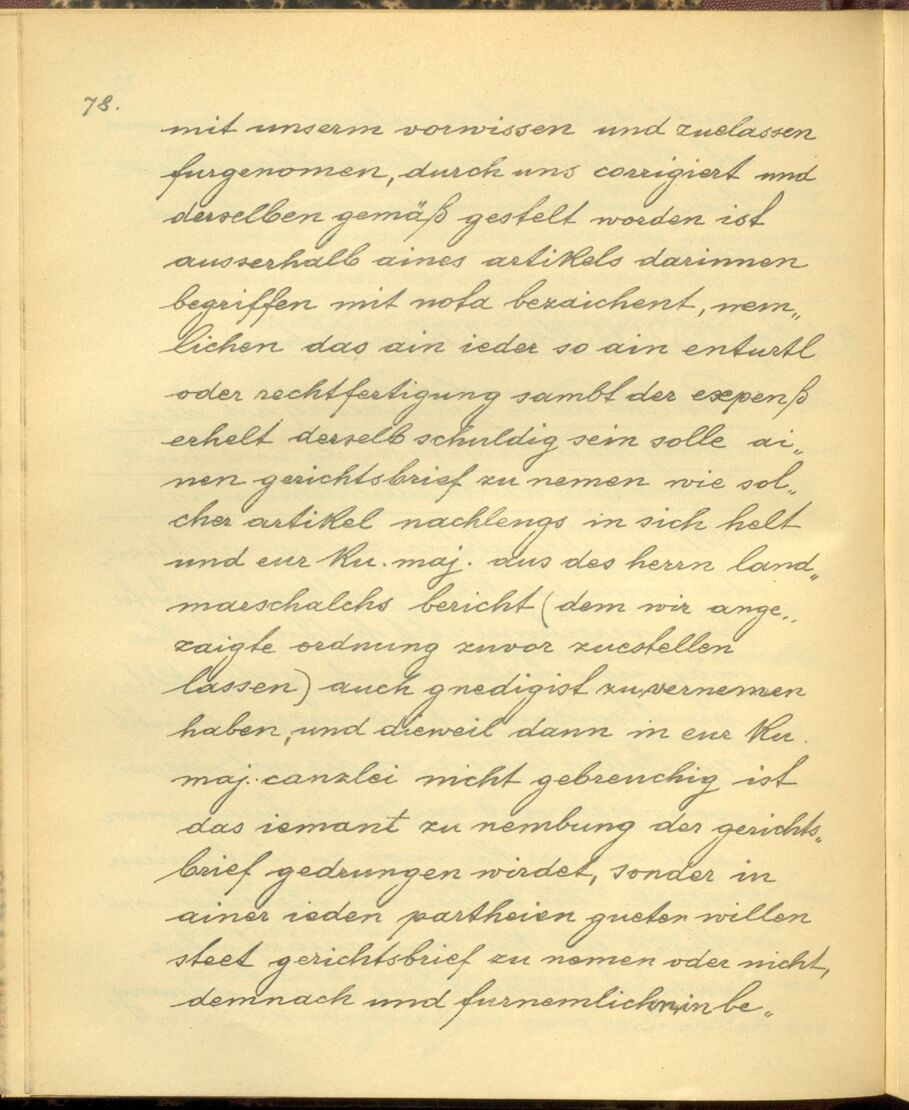 78.
mit unserm vorwissen und zuelassen
furgenomen, durch uns corrigiert und
derselben gemäß gestelt worden ist
ausserhalb aines artikels darinnen
begriffen mit nota bezaichent, nem„
lichen das ain ieder so ain enturtl
oder rechtfertigung sambt der expenß
erhelt derselb schuldig sein solle ai„
nen gerichtsbrief zu nemen wie sol„
cher artikel nachlengs in sich helt
und eur Ku. maj. aus des herrn land„
marschalchs bericht (dem wir ange„
zaigte ordnung zuvor zuestellen
lassen) auch gnedigist zu vernemen
haben, und dieweil dann in eur Ku.
maj. canzlei nicht gebreuchig ist
das iemant zu nembung der gerichts„
brief gedrungen wirdet, sonder in
ainer ieden partheien gueten willen
steet gerichtsbrief zu nemen oder nicht,
demnach und furnemlich in be„